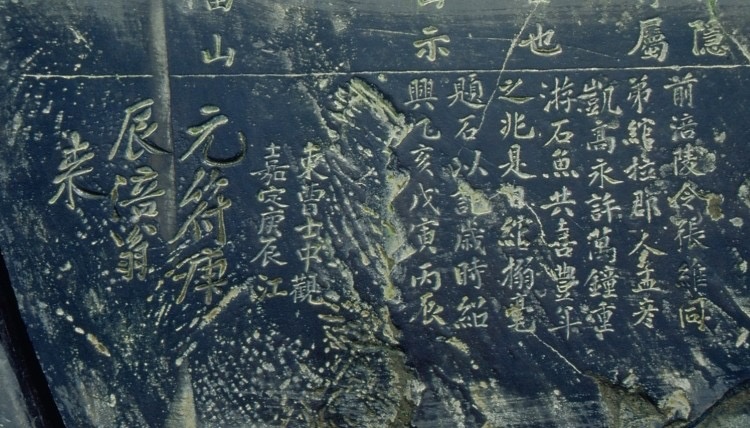 隱
屬
也
示
山
前涪陵令張維同
弟綰拉郡人孟彥
凱高永許萬鐘重
游石魚共喜豐年
之兆是日綰搦毫
題石以記歲時紹
興乙亥戊寅丙辰
嘉定庚辰江
東曹士中觀
元符庚
辰涪翁
来